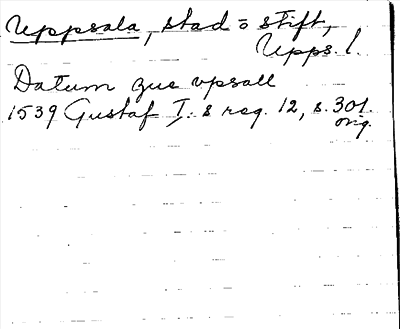 Uppsala, stad o stift,
Upps. l.
Datum zue vpsall
1539 Gustaf I:s reg. 12, s. 301.
orig.